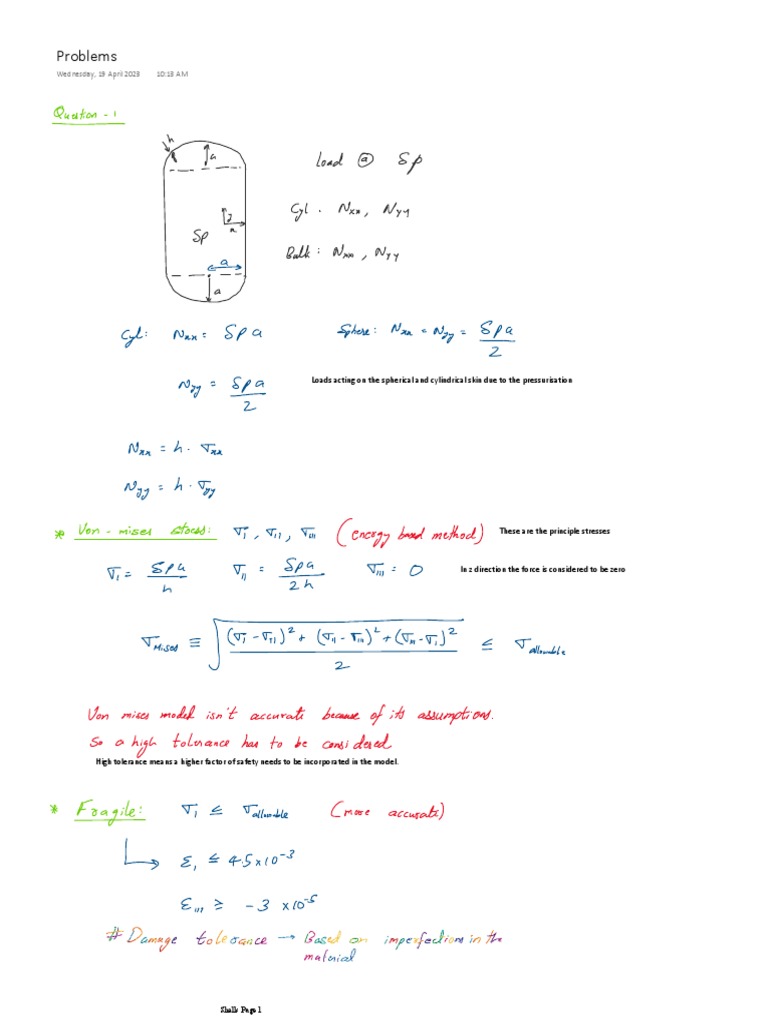 Problems
Wednesday, 19 April 2023 10:13 AM
Question - 1
h
a
Load @ δp
z
x
Cyl. Nxx, Nyy
δp
a
Bulk: Nxx, Nyy
a
Cyl: Nxx = δp a Sphere: Nxx = Nyy = δp a / 2
Nyy = δp a / 2 Loads acting on the spherical and cylindrical skin due to the pressurisation
Nxx = h · σxx
Nyy = h · σyy
* Von - mises stress: σI, σII, σIII (energy based method) These are the principle stresses
σI = δp a / h σII = δp a / 2h σIII = 0 In z direction the force is considered to be zero
σMises ≡ √((σI - σII)² + (σII - σIII)² + (σIII - σI)² / 2) ≤ σallowable
Von mises model isn't accurate because of its assumptions.
So a high tolerance has to be considered
High tolerance means a higher factor of safety needs to be incorporated in the model.
* Fragile: σI ≤ σallowable (more accurate)
↳ εI ≤ 4.5 × 10⁻³
εIII ≥ - 3 × 10⁻⁵
# Damage tolerance → Based on imperfections in the
material
Shells Page 1